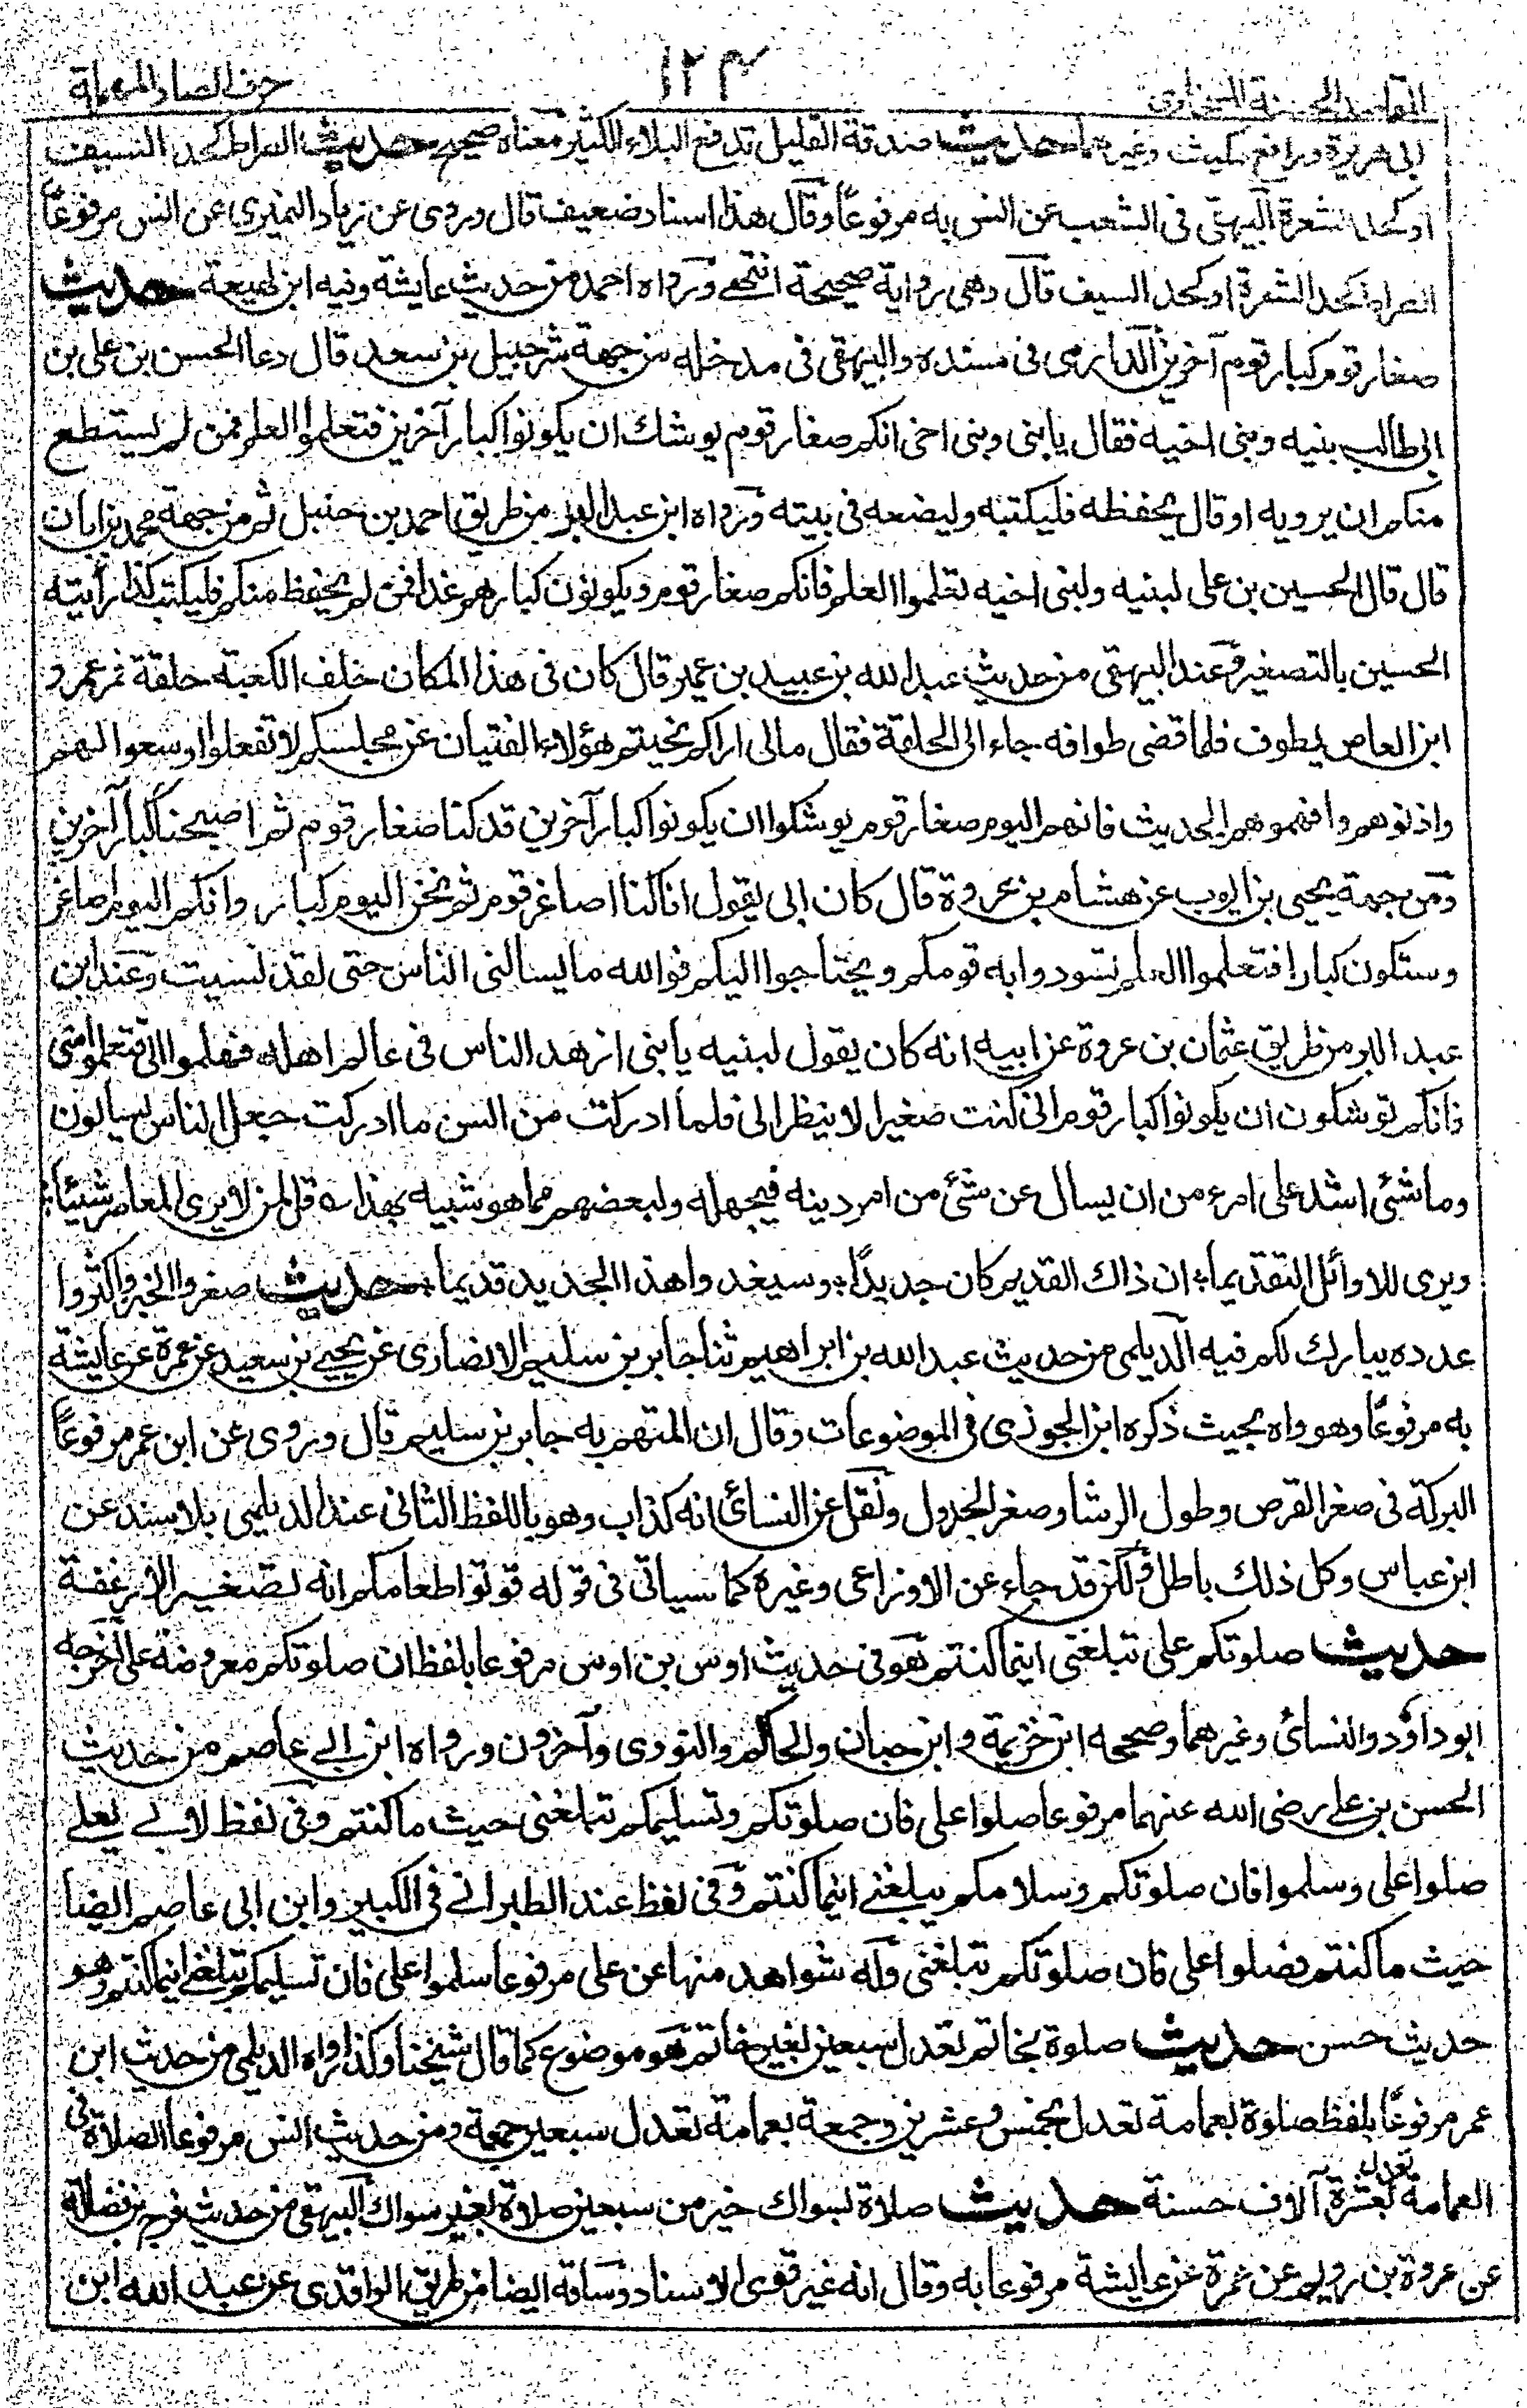 المقاصد الحسنة للسخاوى ١٢٣ حرف الصاد المهملة
ابى هريرة ورافع بن مكيث وغيرهما حديث صدقة القليل تدفع البلاء الكثير معناه صحيح حديث الصراط كحد السيف
او كحد الشعرة البيهقى فى الشعب عن انس به مرفوعًا وقال هذا اسناد ضعيف قال وروى عن زياد النميرى عن انس مرفوعًا
الصراط كحد الشعرة او كحد السيف قال وهى رواية صحيحة انتهى ورواه احمد من حديث عايشة وفيه ابن لهيعة حديث
صغار قوم كبار قوم آخرين الدارمى فى مسنده والبيهقى فى مدخله من جهة شرحبيل بن سعد قال دعا الحسن بن على بن
ابى طالب بنيه وبنى اخيه فقال يا بنى وبنى اخى انكم صغار قوم يوشك ان يكونوا كبار آخرين فتعلموا العلم فمن لم يستطع
منكم ان يرويه او قال يحفظه فليكتبه وليضعه فى بيته ورواه ابن عبد البر من طريق احمد بن حنبل ثم من جهة محمد بن ابان
قال قال الحسين بن على لبنيه ولبنى اخيه تعلموا العلم فانكم صغار قوم ويكونون كبارهم غدا فمن لم يحفظ منكم فليكتب كذا رأيته
الحسين بالتصغير وعند البيهقى من حديث عبد الله بن عبيد بن عمير قال كان فى هذا المكان خلف الكعبة حلقة فمر عمرو
ابن العاص يطوف فلما قضى طوافه جاء الى الحلقة فقال مالى اراكم نحيتم هؤلاء الفتيان عن مجلسكم لا تفعلوا اوسعوا لهم
واذنوهم وافهموهم الحديث فانهم اليوم صغار قوم يوشكوا ان يكونوا كبار آخرين قد كنا صغار قوم ثم اصبحنا كبار آخرين
ومن جهة يحيى بن ايوب عن هشام بن عروة قال كان ابى يقول انا كنا اصاغر قوم ثم نحن اليوم كبار وانكم اليوم اصاغر
وستكون كبارا فتعلموا العلم تسودوا به قومكم ويحتاجوا اليكم فوالله ما يسالنى الناس حتى لقد نسيت وعند ابن
عبد البر من طريق عثمان بن عروة عن ابيه انه كان يقول لبنيه يا بنى ازهد الناس فى عالم اهله فهلموا الى فتعلموا منى
فانكم توشكون ان يكونوا كبار قوم انى كنت صغيرا لا ينظر الى فلما ادركت من السن ما ادركت جعل الناس يسالون
وما شئ اشد على امرء من ان يسال عن شئ من امر دينه فيجهله ولبعضهم مما هو شبيه بهذا قل لمن لا يرى المعاصر شيئًا
ويرى للاوائل التقديما ان ذاك القديم كان جديدًا وسيغدوا هذا الجديد قديما حديث صغروا الخبز واكثروا
عدده يبارك لكم فيه الديلمى من حديث عبد الله بن ابراهيم ثنا جابر بن سليم الانصارى عن يحيى بن سعيد عن عمرة عن عايشة
به مرفوعًا وهو واه بحيث ذكره ابن الجوزى فى الموضوعات وقال ان المتهم به جابر بن سليم قال وروى عن ابن عمر مرفوعًا
البركة فى صغر القرص وطول الرشا وصغر الجدول ونقل عن النسائ انه كذاب وهو باللفظ الثانى عند الديلمى بلا سند عن
ابن عباس وكل ذلك باطل ولكن قد جاء عن الاوزاعى وغيره كما سياتى فى قوله قوتوا طعامكم انه تصغير الارغفة
حديث صلوتكم على تبلغنى اينما كنتم هو فى حديث اوس بن اوس مرفوعا بلفظ ان صلوتكم معروضة على اخرجه
ابو داؤد والنسائ وغيرهما وصححه ابن خزيمة وابن حبان والحاكم والنووى وآخرون ورواه ابن ابى عاصم من حديث
الحسن بن على رضى الله عنهما مرفوعا صلوا على فان صلوتكم وتسليمكم تبلغنى حيث ما كنتم وفى لفظ لابى يعلى
صلوا على وسلموا فان صلوتكم وسلامكم يبلغنى اينما كنتم وفى لفظ عند الطبرانى فى الكبير وابن ابى عاصم ايضا
حيث ما كنتم فصلوا على فان صلوتكم تبلغنى وله شواهد منها عن على مرفوعا سلموا على فان تسليمكم تبلغنى اينما كنتم وهو
حديث حسن حديث صلوة بخاتم تعدل سبعين بغير خاتم هو موضوع كما قال شيخنا وكذا رواه الديلمى من حديث ابن
عمر مرفوعًا بلفظ صلوة بعمامة تعدل بخمس وعشرين وجمعة بعمامة تعدل سبعين جمعة ومن حديث انس مرفوعا الصلاة فى
العمامة تعدل بعشرة آلاف حسنة حديث صلاة بسواك خير من سبعين صلاة بغير سواك البيهقى من حديث فرج بن فضالة
عن عروة بن رويم عن عمرة عن عايشة مرفوعا به وقال انه غير قوى الاسناد وساقه ايضا من طريق الواقدى عن عبد الله ابن